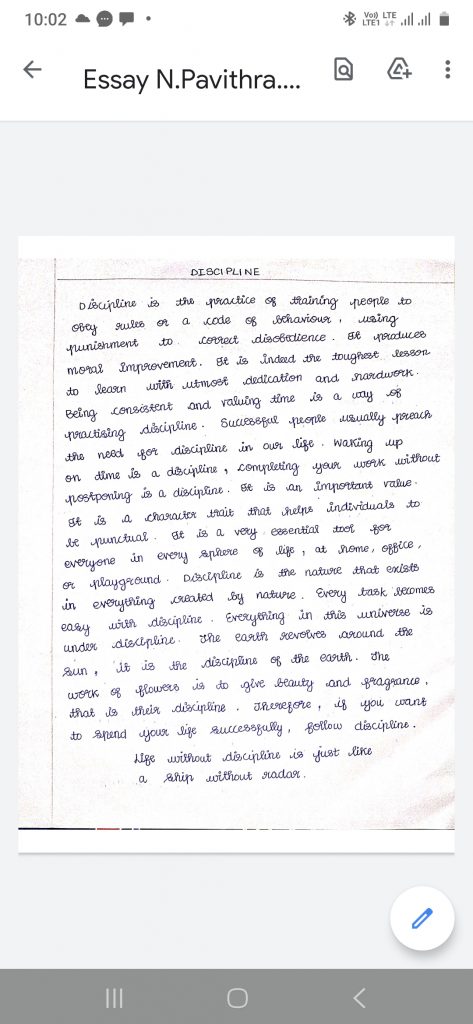 10:02
Vo) LTE
LTE1
Essay N.Pavithra....
DISCIPLINE
Discipline is the practice of training people to
obey rules or a code of behaviour, using
punishment to correct disobedience. It produces
moral improvement. It is indeed the toughest lesson
to learn with utmost dedication and hardwork.
Being consistent and valuing time is a way of
practising discipline. Successful people usually preach
the need for discipline in our life. Waking up
on time is a discipline, completing your work without
postponing is a discipline. It is an important value.
It is a character trait that helps individuals to
be punctual. It is a very essential tool for
everyone in every sphere of life, at home, office,
or playground. Discipline is the nature that exists
in everything created by nature. Every task becomes
easy with discipline. Everything in this universe is
under discipline. The earth revolves around the
sun, it is the discipline of the earth. The
work of flowers is to give beauty and fragrance,
that is their discipline. Therefore, if you want
to spend your life successfully, follow discipline.
Life without discipline is just like
a ship without radar.